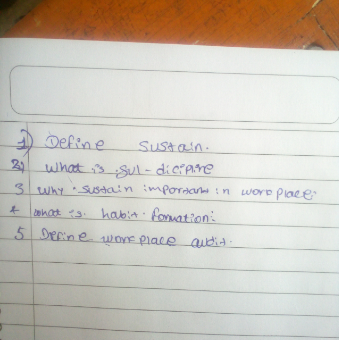 1) Define sustain.
2) what is sul-dicipire
3 why sustain important in workplace.
4 what is habit formation:
5 Define workplace audit.